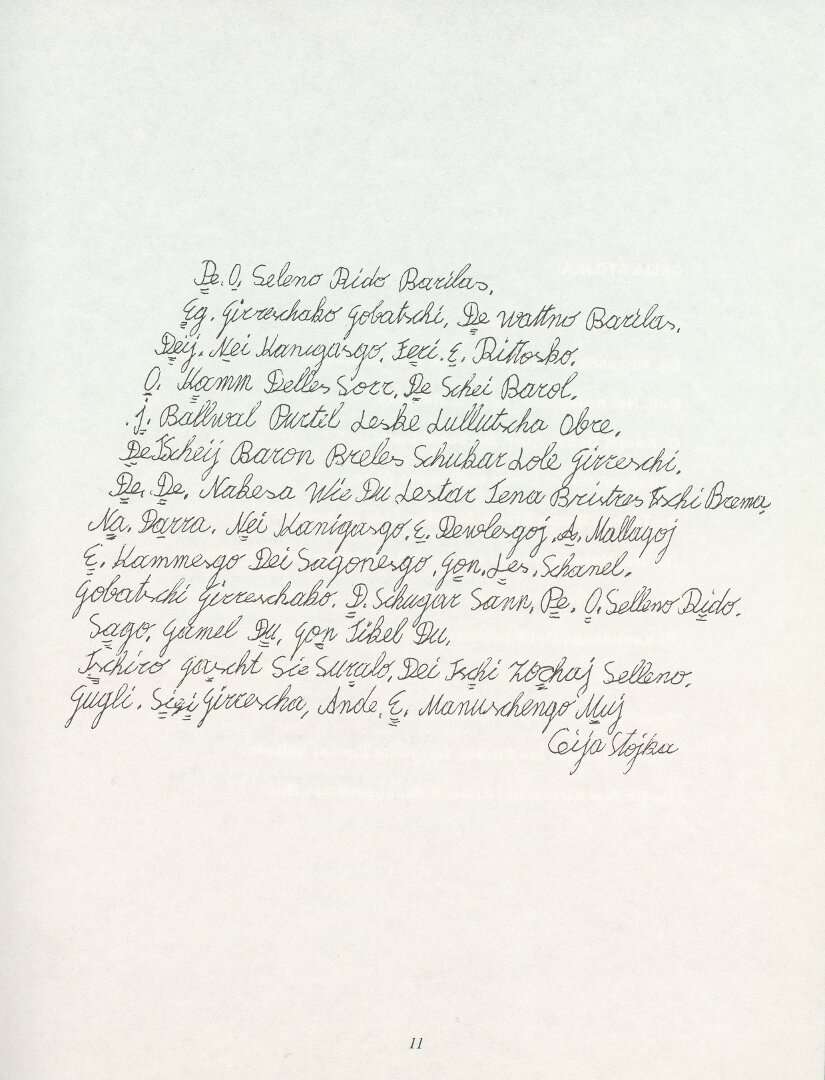 Pe. O. Seleno Rido Barilas.
Eg. Girreschako Gobatschi, De wattno Barilas.
Deij. Nei Kanigasgo. Feri. E. Rittosko.
O. Kamm Delles Sorr, De Schei Barol.
J. Ballwal Purtil Leske Lullutscha Obre.
De Tscheij Baron Breles Schukar Lole Girreschi.
De. De. Nakesa Wie Du Lestar Tena Bristres Tschi Brema
Na. Darra. Nei Kanigasgo. E. Dewlesgoj. A. Mallagoj
E. Kammesgo Dei Sagonesgo, Gon. Les. Schanel.
Gobatschi Girreschako. D. Schugar Sann, Pe. O. Selleno Rido.
Sago. Gamel Du, Gon Tikel Du,
Tschiro Gascht Sie Suralo, Dei Tschi Zochaj Selleno.
Gugli. Siei Girrescha, Ande. E. Manuschengo Muj
Ceija Stojka
11